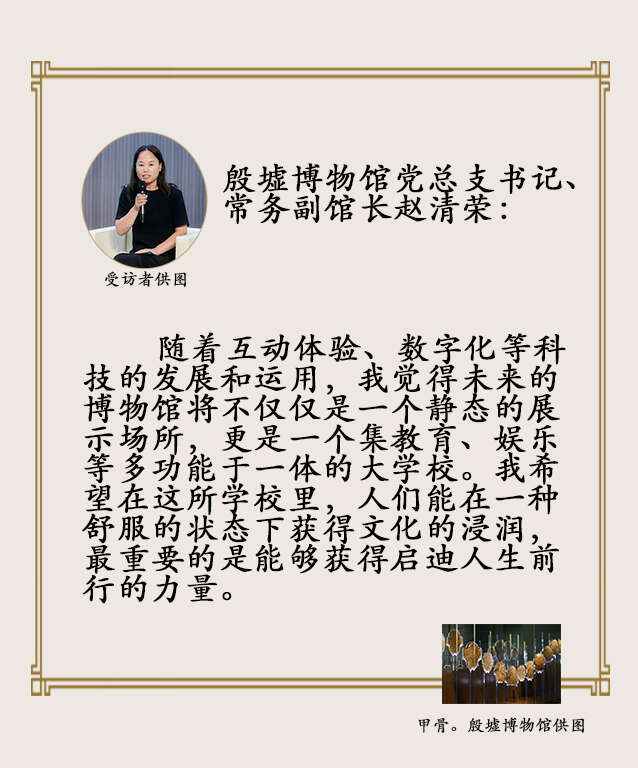 殷墟博物馆党总支书记、
常务副馆长赵清荣：
受访者供图
随着互动体验、数字化等科
技的发展和运用，我觉得未来的
博物馆将不仅仅是一个静态的展
示场所，更是一个集教育、娱乐
等多功能于一体的大学校。我希
望在这所学校里，人们能在一种
舒服的状态下获得文化的浸润，
最重要的是能够获得启迪人生前
行的力量。
甲骨。殷墟博物馆供图